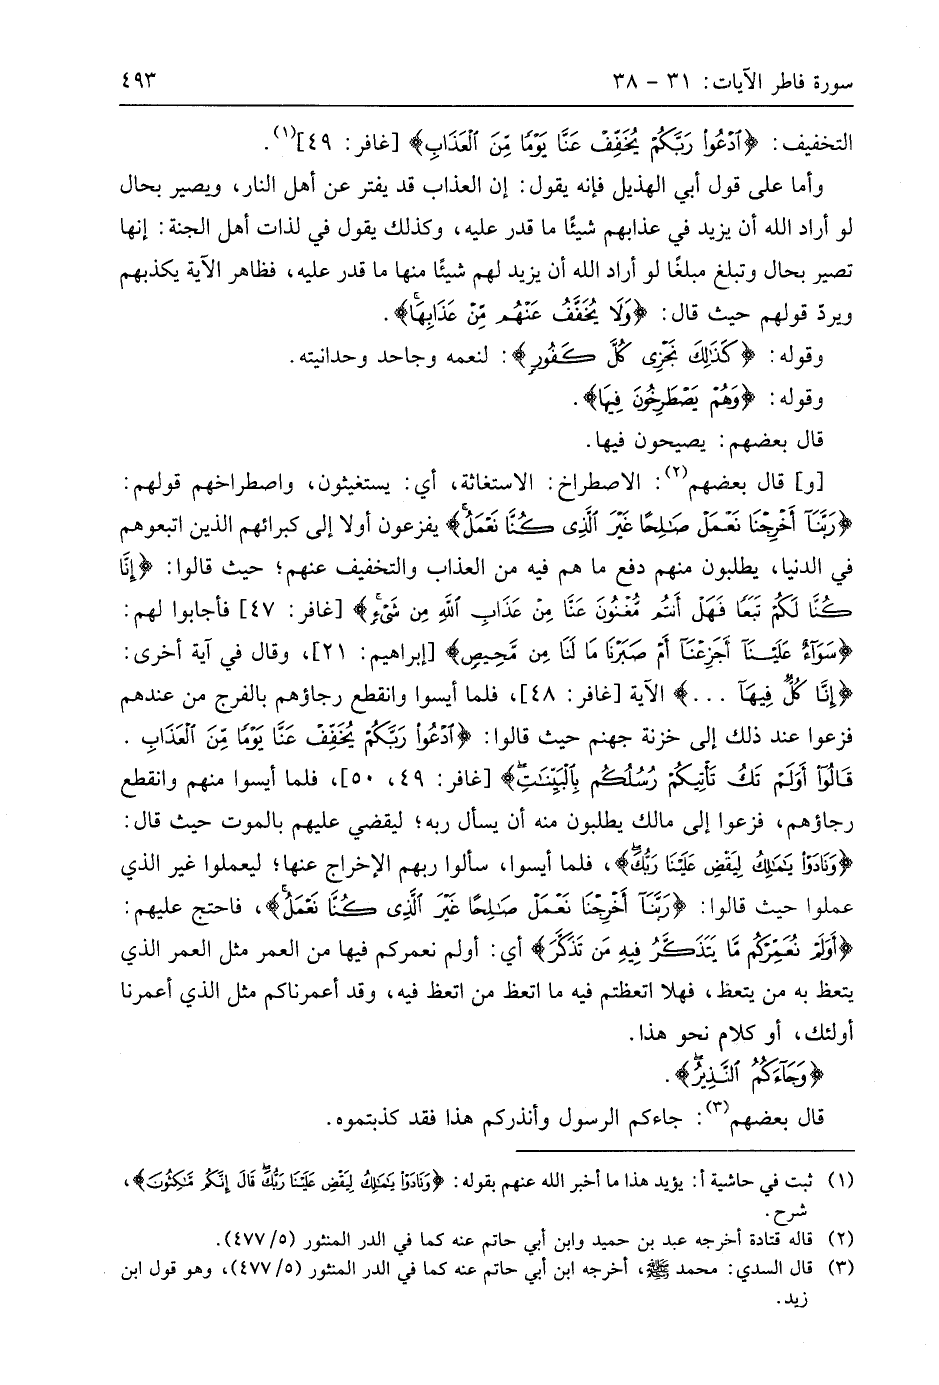 سورة فاطر الآيات: ٣١ - ٣٨ ٤٩٣
التخفيف: ﴿ٱدْعُوا۟ رَبَّكُمْ يُخَفِّفْ عَنَّا يَوْمًا مِّنَ ٱلْعَذَابِ﴾ [غافر: ٤٩](١).
وأما على قول أبي الهذيل فإنه يقول: إن العذاب قد يفتر عن أهل النار، ويصير بحال
لو أراد الله أن يزيد في عذابهم شيئًا ما قدر عليه، وكذلك يقول في لذات أهل الجنة: إنها
تصير بحال وتبلغ مبلغًا لو أراد الله أن يزيد لهم شيئًا منها ما قدر عليه، فظاهر الآية يكذبهم
ويردّ قولهم حيث قال: ﴿وَلَا يُخَفَّفُ عَنْهُم مِّنْ عَذَابِهَا﴾.
وقوله: ﴿كَذَٰلِكَ نَجْزِى كُلَّ كَفُورٍ﴾: لنعمه وجاحد وحدانيته.
وقوله: ﴿وَهُمْ يَصْطَرِخُونَ فِيهَا﴾.
قال بعضهم: يصيحون فيها.
[و] قال بعضهم(٢): الاصطراخ: الاستغاثة، أي: يستغيثون، واصطراخهم قولهم:
﴿رَبَّنَآ أَخْرِجْنَا نَعْمَلْ صَٰلِحًا غَيْرَ ٱلَّذِى كُنَّا نَعْمَلُ﴾ يفزعون أولا إلى كبرائهم الذين اتبعوهم
في الدنيا، يطلبون منهم دفع ما هم فيه من العذاب والتخفيف عنهم؛ حيث قالوا: ﴿إِنَّا
كُنَّا لَكُمْ تَبَعًا فَهَلْ أَنتُم مُّغْنُونَ عَنَّا مِنْ عَذَابِ ٱللَّهِ مِن شَىْءٍ﴾ [غافر: ٤٧] فأجابوا لهم:
﴿سَوَآءٌ عَلَيْنَآ أَجَزِعْنَآ أَمْ صَبَرْنَا مَا لَنَا مِن مَّحِيصٍ﴾ [إبراهيم: ٢١]، وقال في آية أخرى:
﴿إِنَّا كُلٌّ فِيهَآ ...﴾ الآية [غافر: ٤٨]، فلما أيسوا وانقطع رجاؤهم بالفرج من عندهم
فزعوا عند ذلك إلى خزنة جهنم حيث قالوا: ﴿ٱدْعُوا۟ رَبَّكُمْ يُخَفِّفْ عَنَّا يَوْمًا مِّنَ ٱلْعَذَابِ .
قَالُوٓا۟ أَوَلَمْ تَكُ تَأْتِيكُمْ رُسُلُكُم بِٱلْبَيِّنَٰتِ﴾ [غافر: ٤٩، ٥٠]، فلما أيسوا منهم وانقطع
رجاؤهم، فزعوا إلى مالك يطلبون منه أن يسأل ربه؛ ليقضي عليهم بالموت حيث قال:
﴿وَنَادَوْا۟ يَٰمَٰلِكُ لِيَقْضِ عَلَيْنَا رَبُّكَ﴾، فلما أيسوا، سألوا ربهم الإخراج عنها؛ ليعملوا غير الذي
عملوا حيث قالوا: ﴿رَبَّنَآ أَخْرِجْنَا نَعْمَلْ صَٰلِحًا غَيْرَ ٱلَّذِى كُنَّا نَعْمَلُ﴾، فاحتج عليهم:
﴿أَوَلَمْ نُعَمِّرْكُم مَّا يَتَذَكَّرُ فِيهِ مَن تَذَكَّرَ﴾ أي: أولم نعمركم فيها من العمر مثل العمر الذي
يتعظ به من يتعظ، فهلا اتعظتم فيه ما اتعظ من اتعظ فيه، وقد أعمرناكم مثل الذي أعمرنا
أولئك، أو كلام نحو هذا.
﴿وَجَآءَكُمُ ٱلنَّذِيرُ﴾.
قال بعضهم(٣): جاءكم الرسول وأنذركم هذا فقد كذبتموه.
(١) ثبت في حاشية أ: يؤيد هذا ما أخبر الله عنهم بقوله: ﴿وَنَادَوْا۟ يَٰمَٰلِكُ لِيَقْضِ عَلَيْنَا رَبُّكَ قَالَ إِنَّكُم مَّٰكِثُونَ﴾،
شرح.
(٢) قاله قتادة أخرجه عبد بن حميد وابن أبي حاتم عنه كما في الدر المنثور (٥/ ٤٧٧).
(٣) قال السدي: محمد ﷺ، أخرجه ابن أبي حاتم عنه كما في الدر المنثور (٥/ ٤٧٧)، وهو قول ابن
زيد.